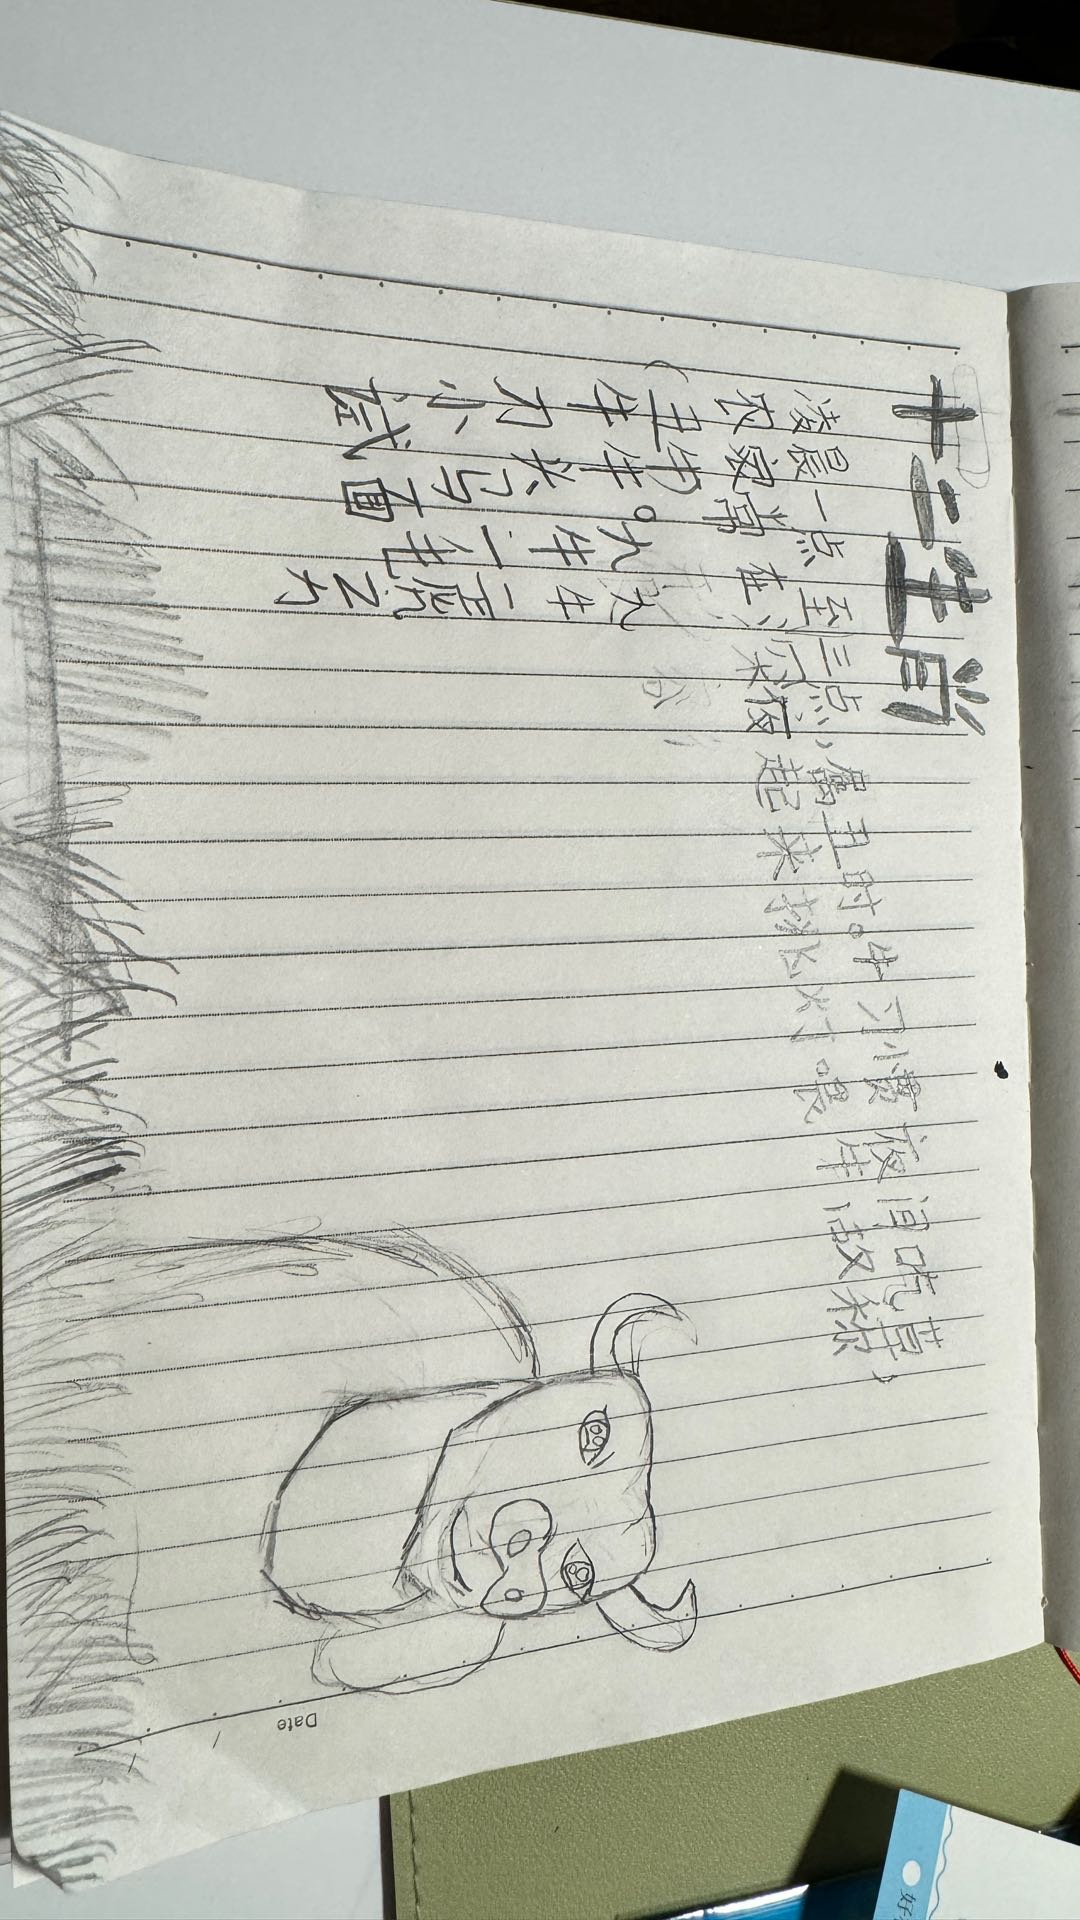 十二生肖
凌晨一点至三点,属丑时。牛习惯夜间吃草,
农家常在深夜起来挑灯喂牛,故称
(丑牛)。
牛刀小试
牛头马面
九牛一毛
九牛二虎之力
Date
好